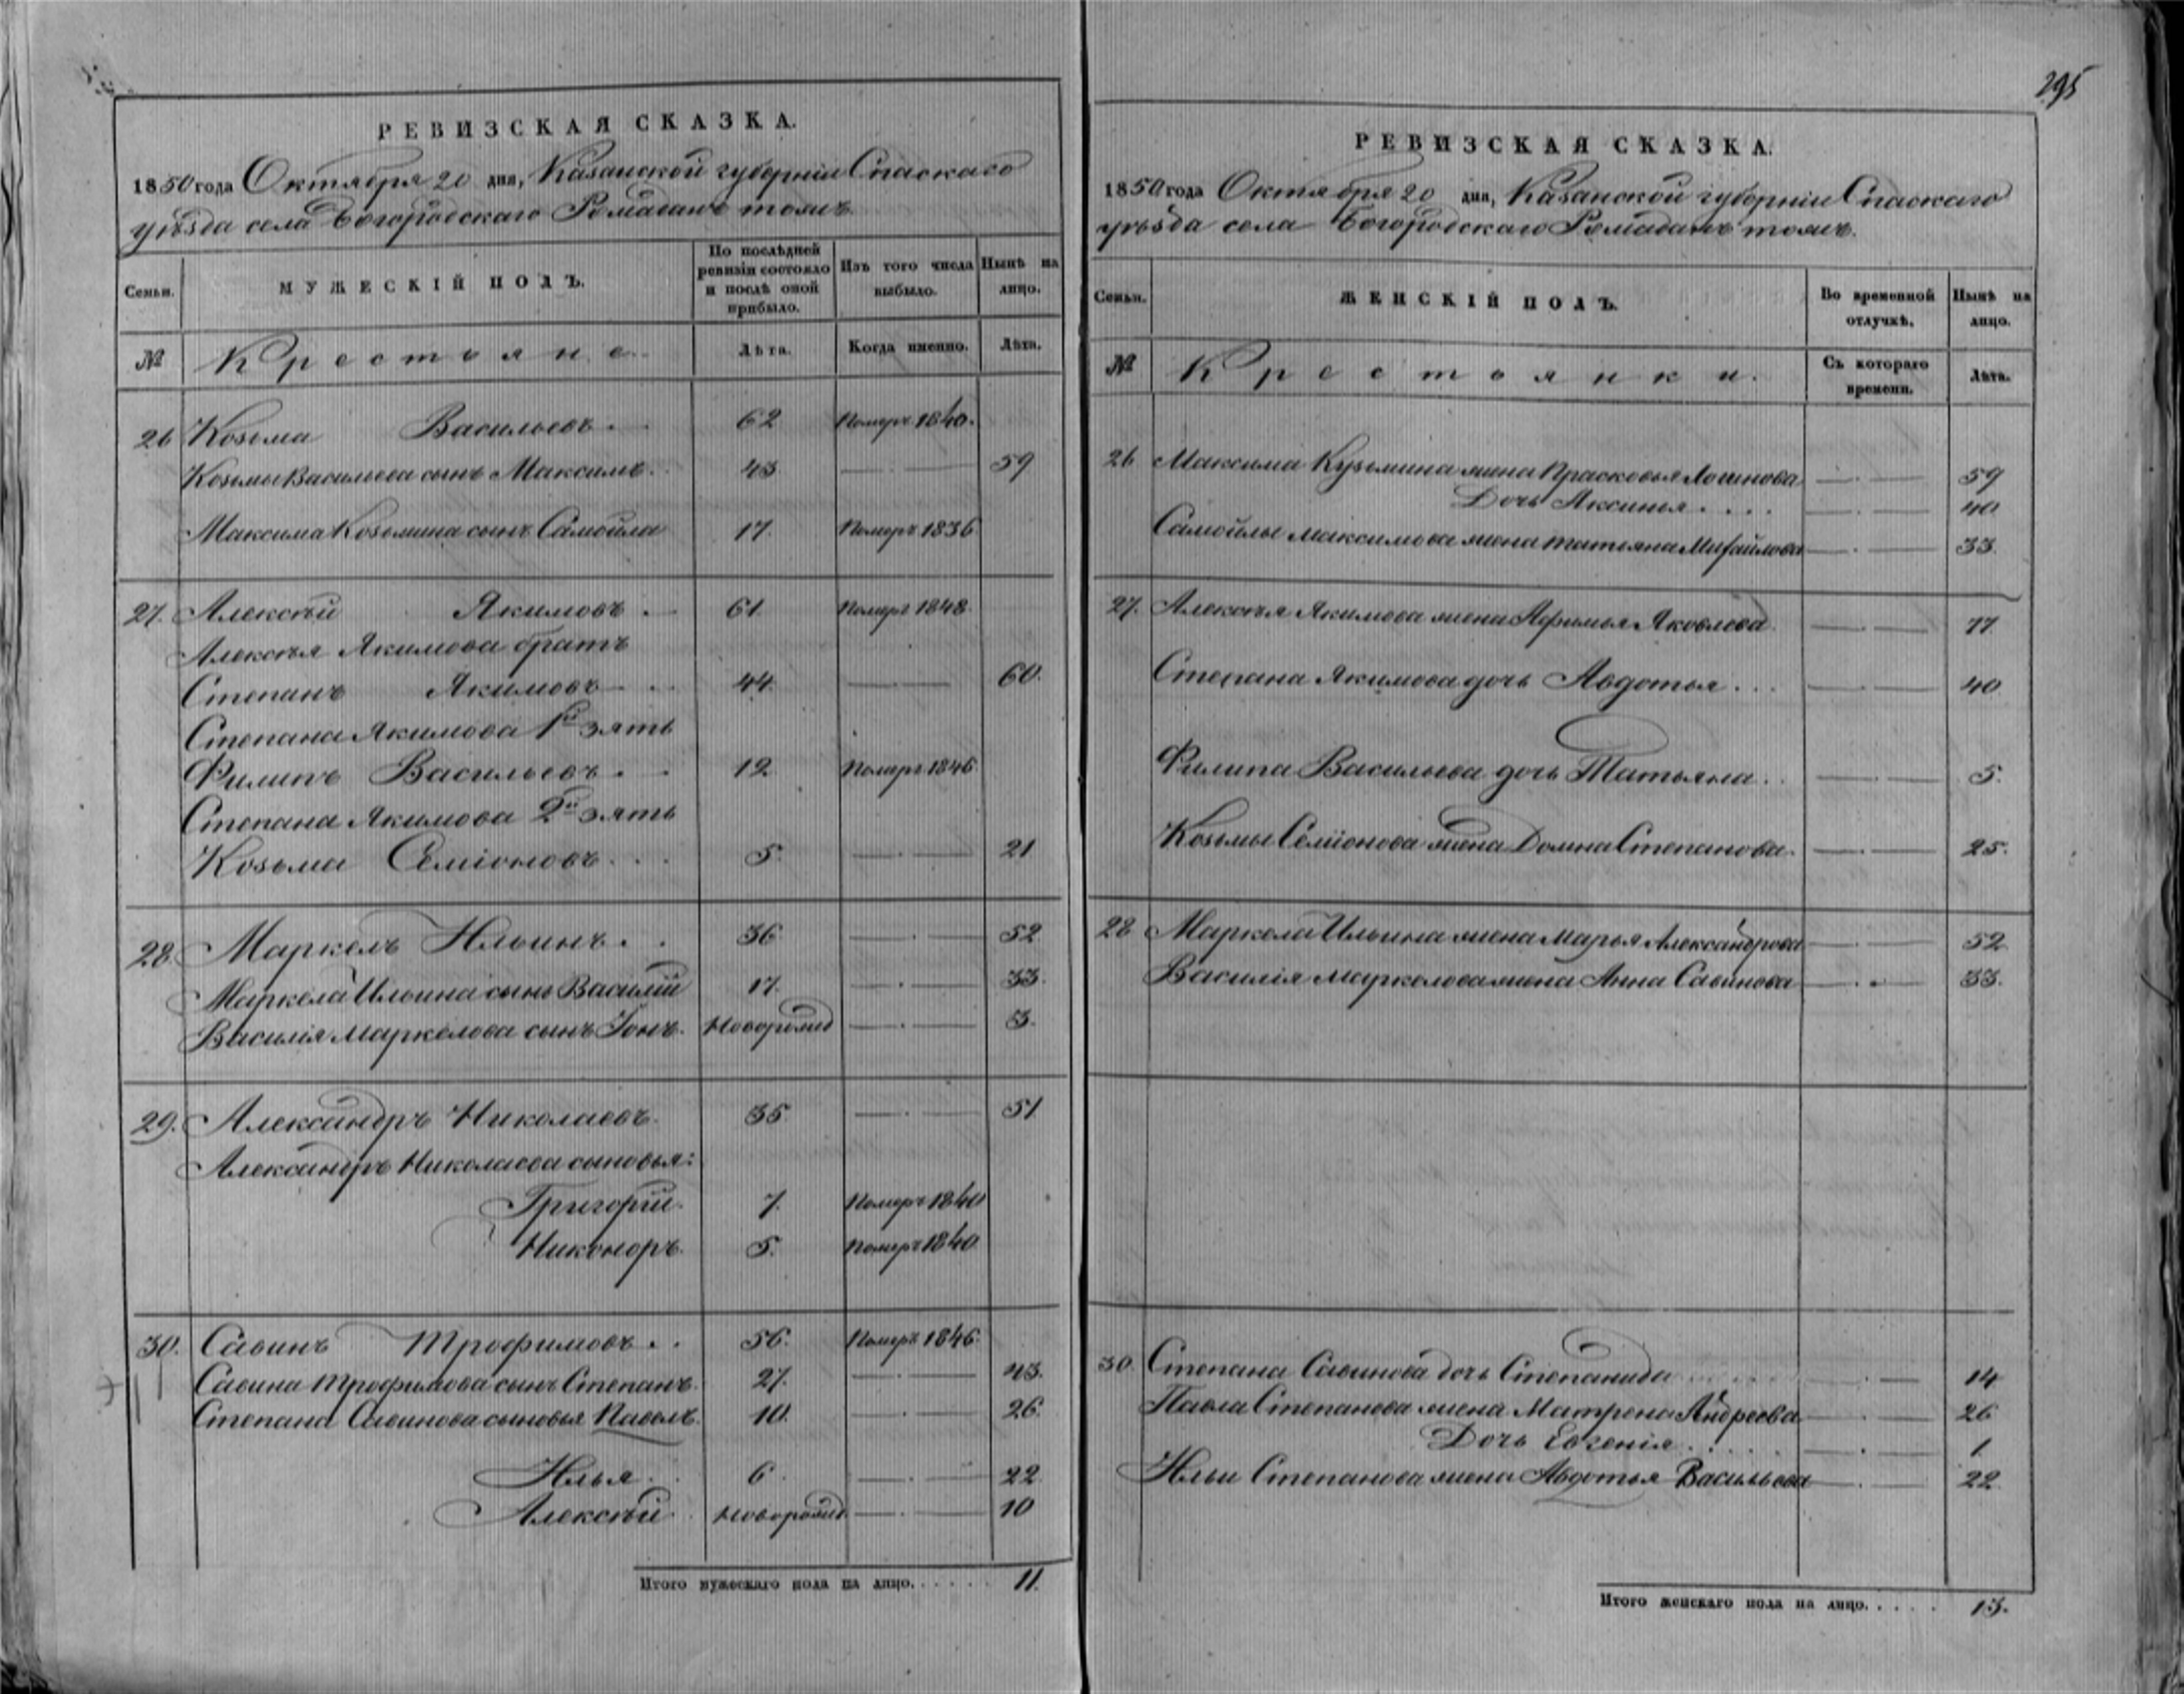 295
РЕВИЗСКАЯ СКАЗКА.
1850 года Октября 20 дня, Казанской губерніи Спаскаго
уѣзда села Богородскаго Ромадань тожъ.
Семьи. МУЖЕСКІЙ ПОЛЪ. По послѣдней ревизіи состояло и послѣ оной прибыло. Изъ того числа выбыло. Нынѣ на лицо.
№ Крестьяне. Лѣта. Когда именно. Лѣта.
26 Козьма Васильевъ. 62 Померъ 1840.
Козьмы Васильева сынъ Максимъ. 43 59
Максима Козьмина сынъ Самойла 17. Померъ 1836
27. Алексѣй Якимовъ. 61 Померъ 1848.
Алексѣя Якимова братъ
Степанъ Якимовъ 44. 60.
Степана Якимова 1й зять
Филипъ Васильевъ. 12 Померъ 1846
Степана Якимова 2й зять
Козьма Семіоновъ... 5. 21
28. Маркелъ Ильинъ.. 36 52
Маркела Ильина сынъ Василій 17. 33.
Василія Маркелова сынъ Іонъ. Новорожд 3.
29. Александръ Николаевъ. 35 51
Александръ Николаева сыновья:
Григорій. 7. Померъ 1840
Никоноръ. 5. Померъ 1840
30. Савинъ Трофимовъ.. 56. Померъ 1846
Савина Трофимова сынъ Степанъ. 27. 43.
Степана Савинова сыновья Павелъ. 10. 26.
Илья. 6. 22.
Алексѣй Новорожд. 10
Итого мужескаго пола на лицо...... 11.
РЕВИЗСКАЯ СКАЗКА.
1850 года Октября 20 дня, Казанской губерніи Спаскаго
уѣзда села Богородскаго Ромадань тожъ.
Семьи. ЖЕНСКІЙ ПОЛЪ. Во временной отлучкѣ. Нынѣ на лицо.
№ Крестьянки. Съ котораго времени. Лѣта.
26 Максима Кузьмина жена Прасковья Логинова 59
Дочь Аксинья.... 40
Самойлы Максимова жена Татьяна Михайлова 33.
27. Алексѣя Якимова жена Афимья Яковлева. 77
Степана Якимова дочь Авдотья... 40
Филипа Васильева дочь Татьяна.. 5.
Козьмы Семіонова жена Домна Степанова. 25.
28 Маркела Ильина жена Марья Александрова 52
Василія Маркелова жена Анна Савинова 33.
30. Степана Савинова дочь Степанида 14
Павла Степанова жена Матрена Андреева 26
Дочь Евгенія..... 1
Ильи Степанова жена Авдотья Васильева 22
Итого женскаго пола на лицо..... 13.